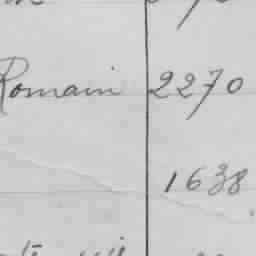 Romain 2270
1638